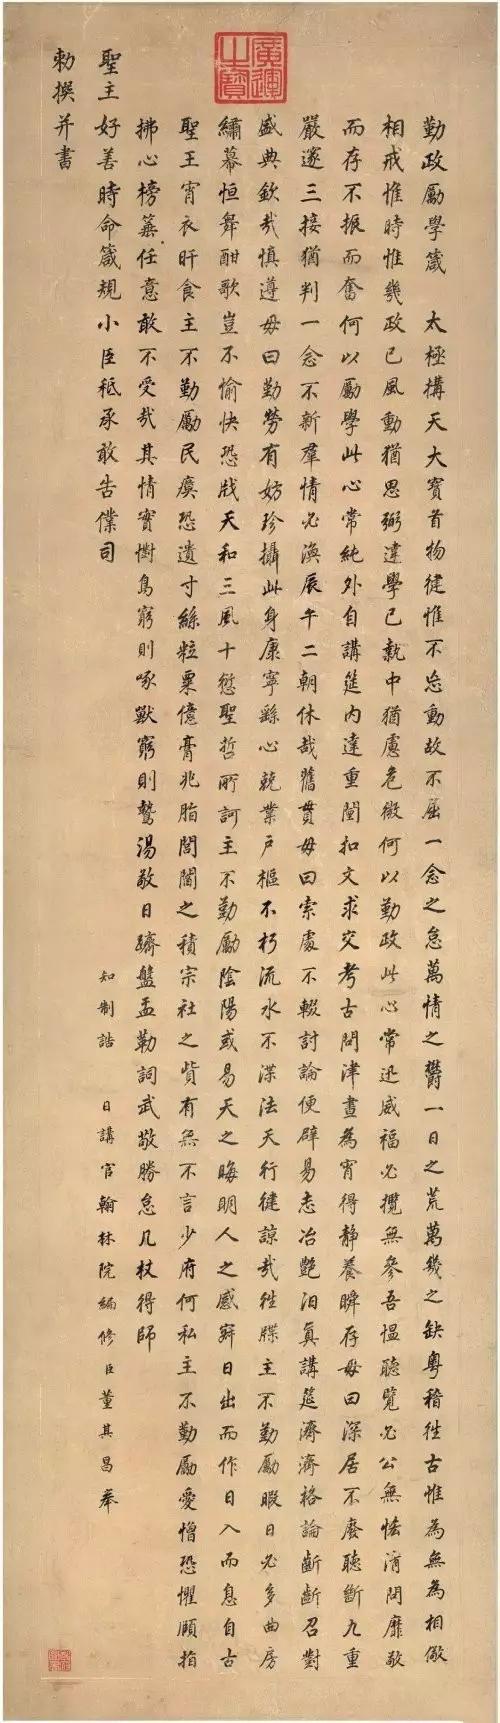 廣運之寶
勤政勵學箴 太極構天大寶首物健惟不息動故不屈一念之怠萬情之欝一日之荒萬幾之缺粵稽往古惟為無為相儆
相戒惟時惟幾政已風動猶思弼違學已執中猶慮危微何以勤政此心常迅威福必攬無參吾愠聽覽必公無恡清問靡敬
而存不振而奮何以勵學此心常純外自講筵內達重闈扣文求交考古問津晝為宵得靜養瞬存毋曰深居不廢聽斷九重
嚴邃三接猶判一念不新羣情必渙辰午二朝休哉舊貫毋曰索處不輟討論便辟易志冶艷汨真講筵濟濟格論斷斷召對
盛典欽哉慎遵毋曰勤勞有妨珍攝此身康寧繇心兢業戶樞不朽流水不渫法天行健諒哉往牒主不勤勵暇日必多曲房
繡幕恒舞酣歌豈不愉快恐戕天和三風十愆聖哲所訶主不勤勵陰陽或易天之晦明人之感日出而作日入而息自古
聖王宵衣旰食主不勤勵民瘼恐遺寸絲粒粟億膏兆脂閭閻之積宗社之貲有無不言少府何私主不勤勵愛憎恐懼頤指
拂心榜箠任意敢不受哉其情實懟鳥窮則啄獸窮則鷙湯敬日躋盤盂勒詞武敬勝怠几杖得師
聖主好善時命箴規小臣秪承敢告僕司
知制誥 日講官翰林院編修臣董其昌奉
勅撰并書